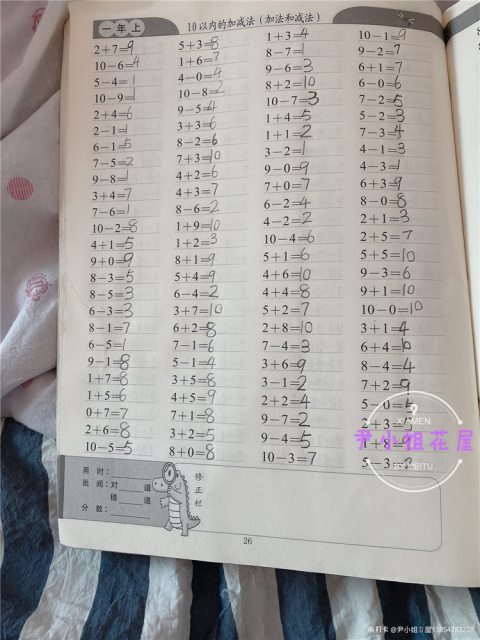 一年上
10以内的加减法（加法和减法）
2+7=9
10-6=4
5-4=1
10-9=1
2+4=6
2-1=1
6-1=5
7-5=2
9-8=1
3+4=7
7-6=1
10-2=8
4+1=5
9+0=9
8-3=5
8-5=3
6-3=3
8-1=7
6-5=1
9-1=8
1+7=8
1+5=6
0+7=7
2+6=8
10-5=5
5+3=8
1+6=7
4-0=4
10-8=2
9-5=4
3+3=6
8-2=6
7+3=10
4+2=6
4+3=7
8-6=2
1+9=10
1+2=3
8+1=9
5+4=9
6-4=2
3+7=10
6+2=8
7-1=6
5-1=4
3+5=8
4+5=9
7+1=8
3+2=5
8+0=8
1+3=4
8-7=1
9-6=3
8+2=10
10-7=3
1+4=5
1+1=2
3-2=1
9-0=9
7+0=7
6-2=4
4-2=2
10-4=6
5+1=6
4+6=10
4+4=8
5+2=7
2+8=10
7-4=3
3+6=9
3-1=2
2+2=4
9-7=2
9-4=5
10-3=7
10-1=9
9-2=7
6+1=7
6-0=6
7-2=5
5-2=3
7-3=4
4-1=3
4-3=1
6+3=9
8-0=8
2+1=3
2+5=7
5+5=10
9-3=6
9+1=10
10-0=10
3+1=4
6+4=10
8-4=4
7+2=9
5-0=5
2+3=5
1+8=9
5-3=2
用时：
批阅：对 道
错 道
分数：
修正栏
26
XIAMEN
尹小姐花屋
BY MEITU